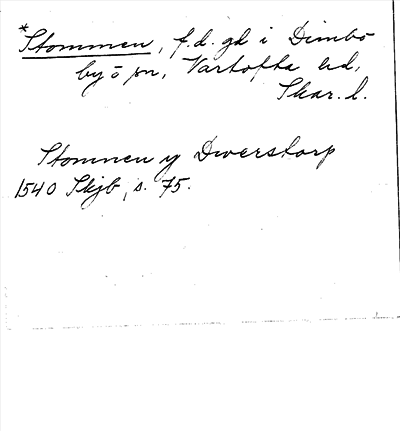 *Stommen, f.d. gd i Dimbo
by o sn, Vartofta hd,
Skar. l.
Stommen y Dwerstorp
1540 Skjb, s. 75.